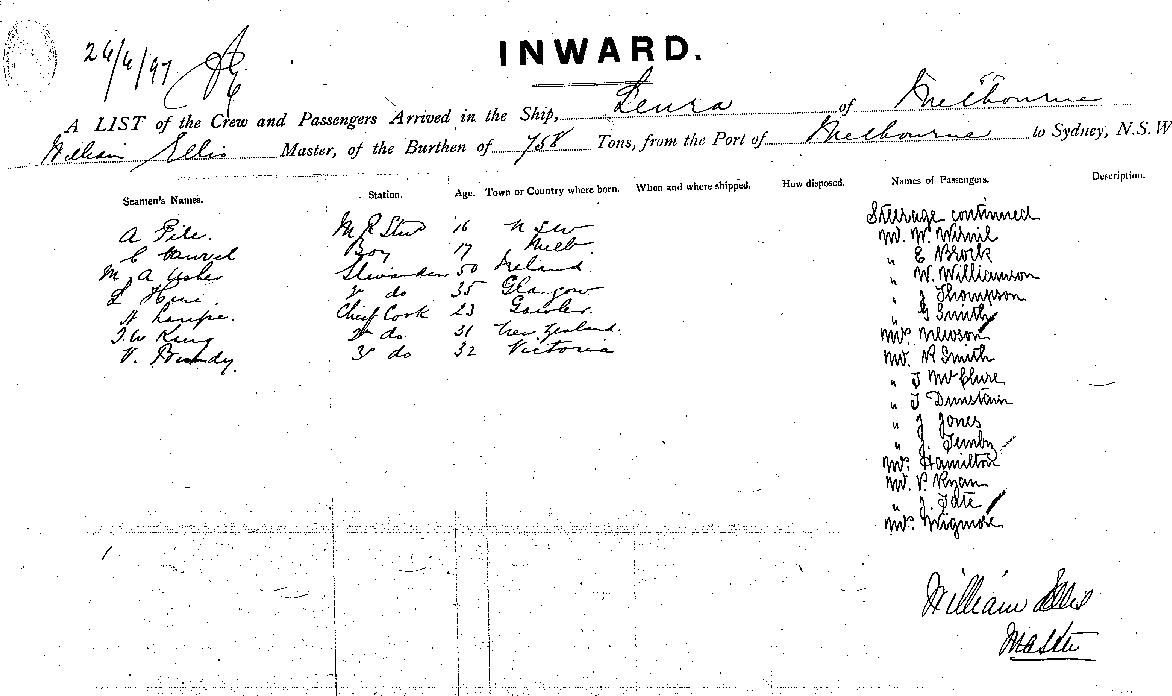 26/6/97
INWARD.
A LIST of the Crew and Passengers Arrived in the Ship, Leura of Melbourne
William Ellis Master, of the Burthen of 758 Tons, from the Port of Melbourne to Sydney, N.S.W
Seamen's Names. Station. Age. Town or Country where born. When and where shipped. How disposed. Names of Passengers. Description.
Steerage continued
A 16 N S W
Boy 17 Melb
M A 50 Ireland
L do 35 Glasgow
H Chief Cook 23 Gawler
J.W King do 31 New Zealand.
V. 3r do 32 Victoria
Mr. W.
" E Brock
" W. Williamson
" J Thompson
" G Smith
Mrs Newson
Mr. R Smith
" J McClure
" J Dunstain
" J Jones
" J. Temby
Mrs Hamilton
Mr. P. Ryan
" J. Tate
Mrs Wigmore
William Ellis
Master